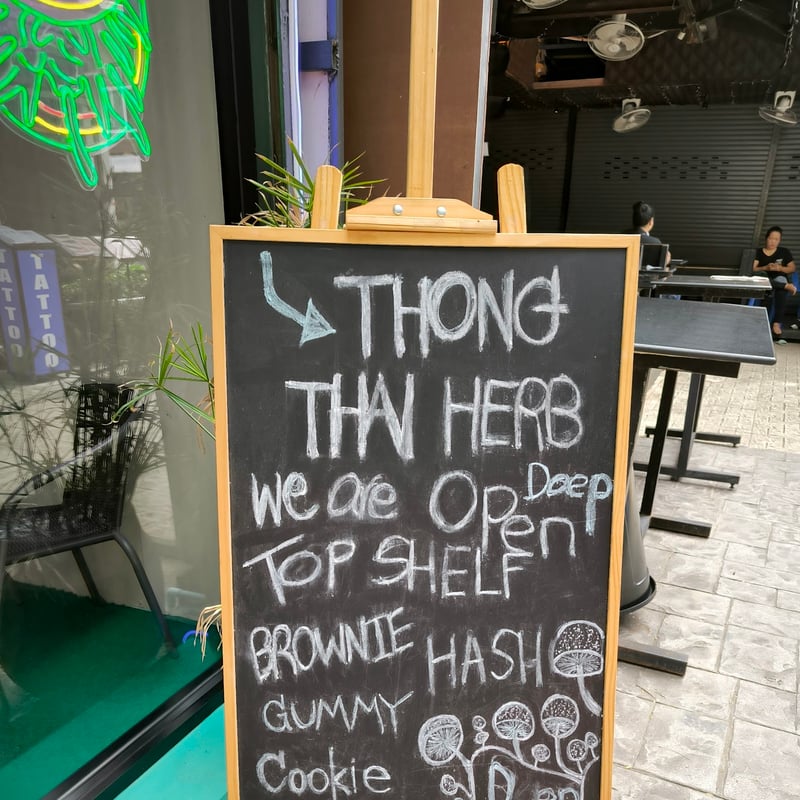 THONG
THAI HERB
We are Open
Deep
TOP SHELF
BROWNIE HASH
GUMMY
Cookie
TATTOO
TATTOO